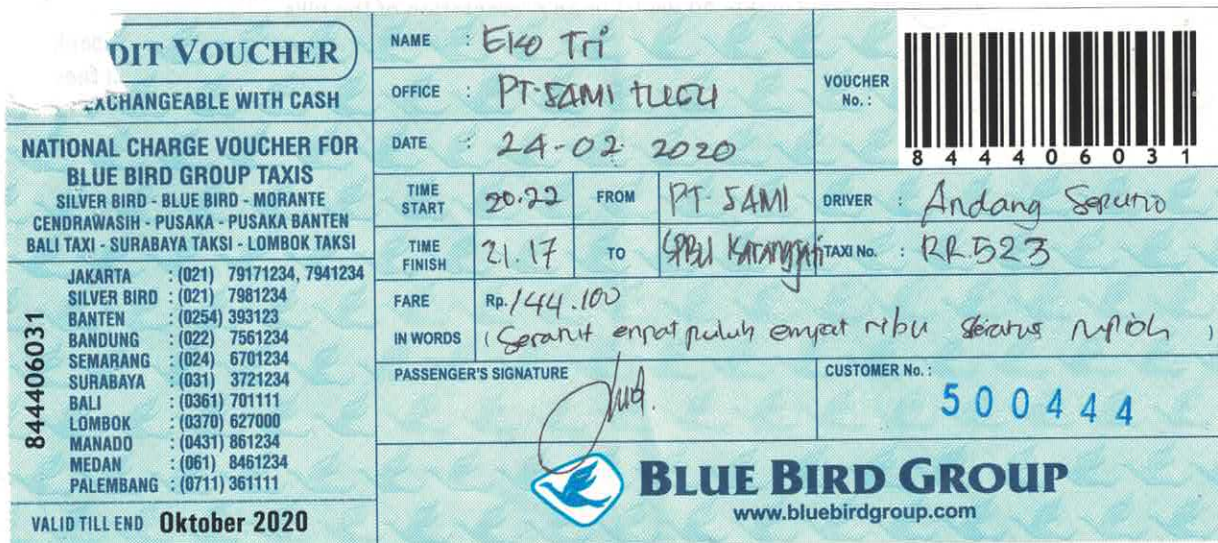 DIT VOUCHER
EXCHANGEABLE WITH CASH
NATIONAL CHARGE VOUCHER FOR
BLUE BIRD GROUP TAXIS
SILVER BIRD - BLUE BIRD - MORANTE
CENDRAWASIH - PUSAKA - PUSAKA BANTEN
BALI TAXI - SURABAYA TAKSI - LOMBOK TAKSI
844406031
JAKARTA : (021) 79171234, 7941234
SILVER BIRD : (021) 7981234
BANTEN : (0254) 393123
BANDUNG : (022) 7561234
SEMARANG : (024) 6701234
SURABAYA : (031) 3721234
BALI : (0361) 701111
LOMBOK : (0370) 627000
MANADO : (0431) 861234
MEDAN : (061) 8461234
PALEMBANG : (0711) 361111
VALID TILL END Oktober 2020
NAME : Eko Tri
OFFICE : PT. SAMI
DATE : 24-02 2020
VOUCHER No. :
844406031
TIME START 20.22 FROM PT. SAMI
DRIVER : Andang
TIME FINISH 21.17 TO SPBU Karangjati
TAXI No. : RR.523
FARE Rp. 144.100
IN WORDS (Seratus empat puluh empat ribu seratus rupiah)
PASSENGER'S SIGNATURE
CUSTOMER No. :
500444
BLUE BIRD GROUP
www.bluebirdgroup.com